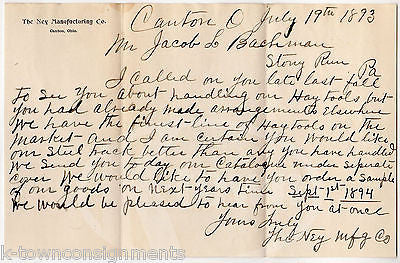 The Ney Manufacturing Co.
Canton, Ohio.
Canton O July 19th 1893
Mr Jacob L Bachman
Stony Run Pa
I called on you late last fall
to see you about handling our Hay tools but
you had already made arrangements elsewhere
We have the finest line of Hay tools on the
market and I am certain you would like
our Steel track better than any you have handled
We send you to day our Catalogue under seperate
cover We would like to have you order a sample
of our goods on next years time Sept 1st 1894
We would be pleased to hear from you at once
Yours Truly
The Ney Mfg Co
k-townconsignments.com